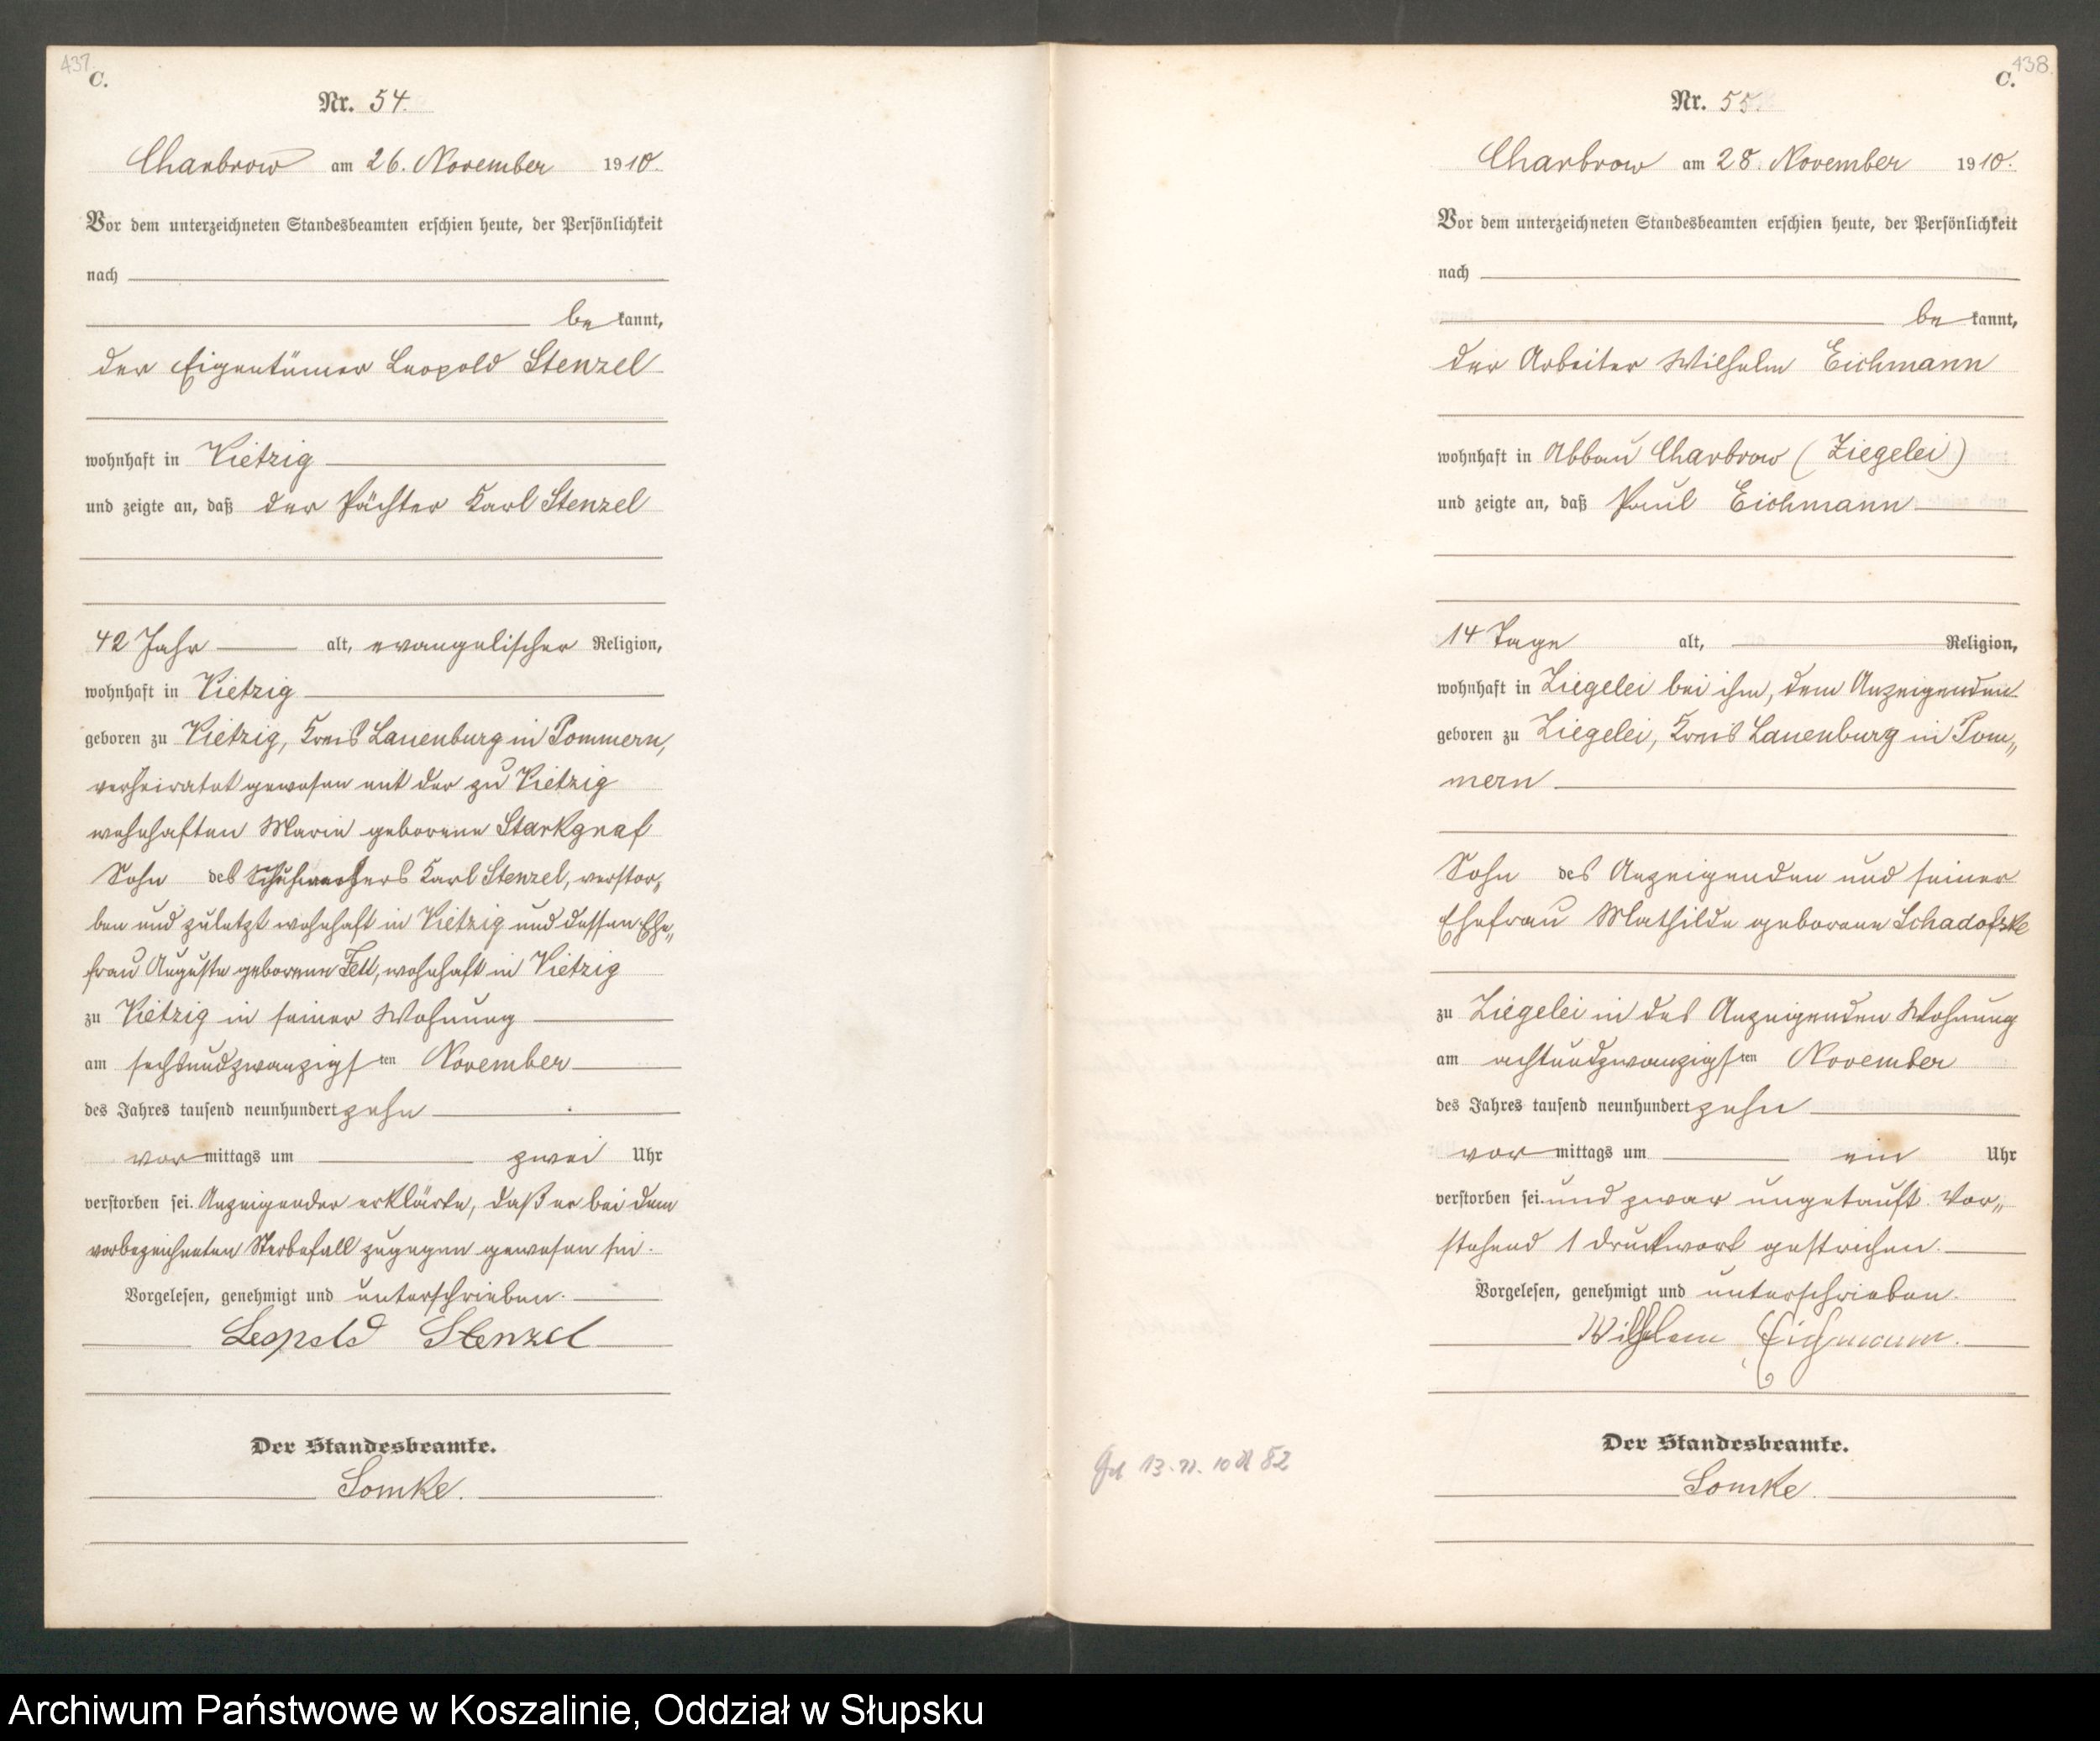 437.
C.
Nr. 54.
Charbrow am 26. November 1910.
Vor dem unterzeichneten Standesbeamten erschien heute, der Persönlichkeit
nach
be kannt,
der Eigentümer Leopold Stenzel
wohnhaft in Vietzig
und zeigte an, daß der Pächter Karl Stenzel
42 Jahr alt, evangelischer Religion,
wohnhaft in Vietzig
geboren zu Vietzig, Kreis Lauenburg in Pommern,
verheiratet gewesen mit der zu Vietzig
wohnhaften Marie geborene Starkgraf
Sohn des Schuhmachers Karl Stenzel, verstor„
ben und zuletzt wohnhaft in Vietzig und dessen Ehe„
frau Auguste geborene Fett, wohnhaft in Vietzig
zu Vietzig in seiner Wohnung
am sechsundzwanzigsten November
des Jahres tausend neunhundert zehn
vor mittags um zwei Uhr
verstorben sei. Anzeigender erklärte, daß er bei dem
vorbezeichneten Sterbefall zugegen gewesen sei.
Vorgelesen, genehmigt und unterschrieben.
Leopold Stenzel
Der Standesbeamte.
Somke.
438.
C.
Nr. 55.
Charbrow am 28. November 1910.
Vor dem unterzeichneten Standesbeamten erschien heute, der Persönlichkeit
nach
be kannt,
der Arbeiter Wilhelm Eichmann
wohnhaft in Abbau Charbrow (Ziegelei)
und zeigte an, daß Paul Eichmann
14 Tage alt, Religion,
wohnhaft in Ziegelei bei ihm, dem Anzeigenden
geboren zu Ziegelei, Kreis Lauenburg in Pom„
mern
Sohn des Anzeigenden und seiner
Ehefrau Mathilde geborene Schadofske
zu Ziegelei in des Anzeigenden Wohnung
am achtundzwanzigsten November
des Jahres tausend neunhundert zehn
vor mittags um ein Uhr
verstorben sei. und zwar ungetauft. Vor„
stehend 1 Druckwort gestrichen.
Vorgelesen, genehmigt und unterschrieben.
Wilhelm Eichmann.
Der Standesbeamte.
Somke.
Archiwum Państwowe w Koszalinie, Oddział w Słupsku